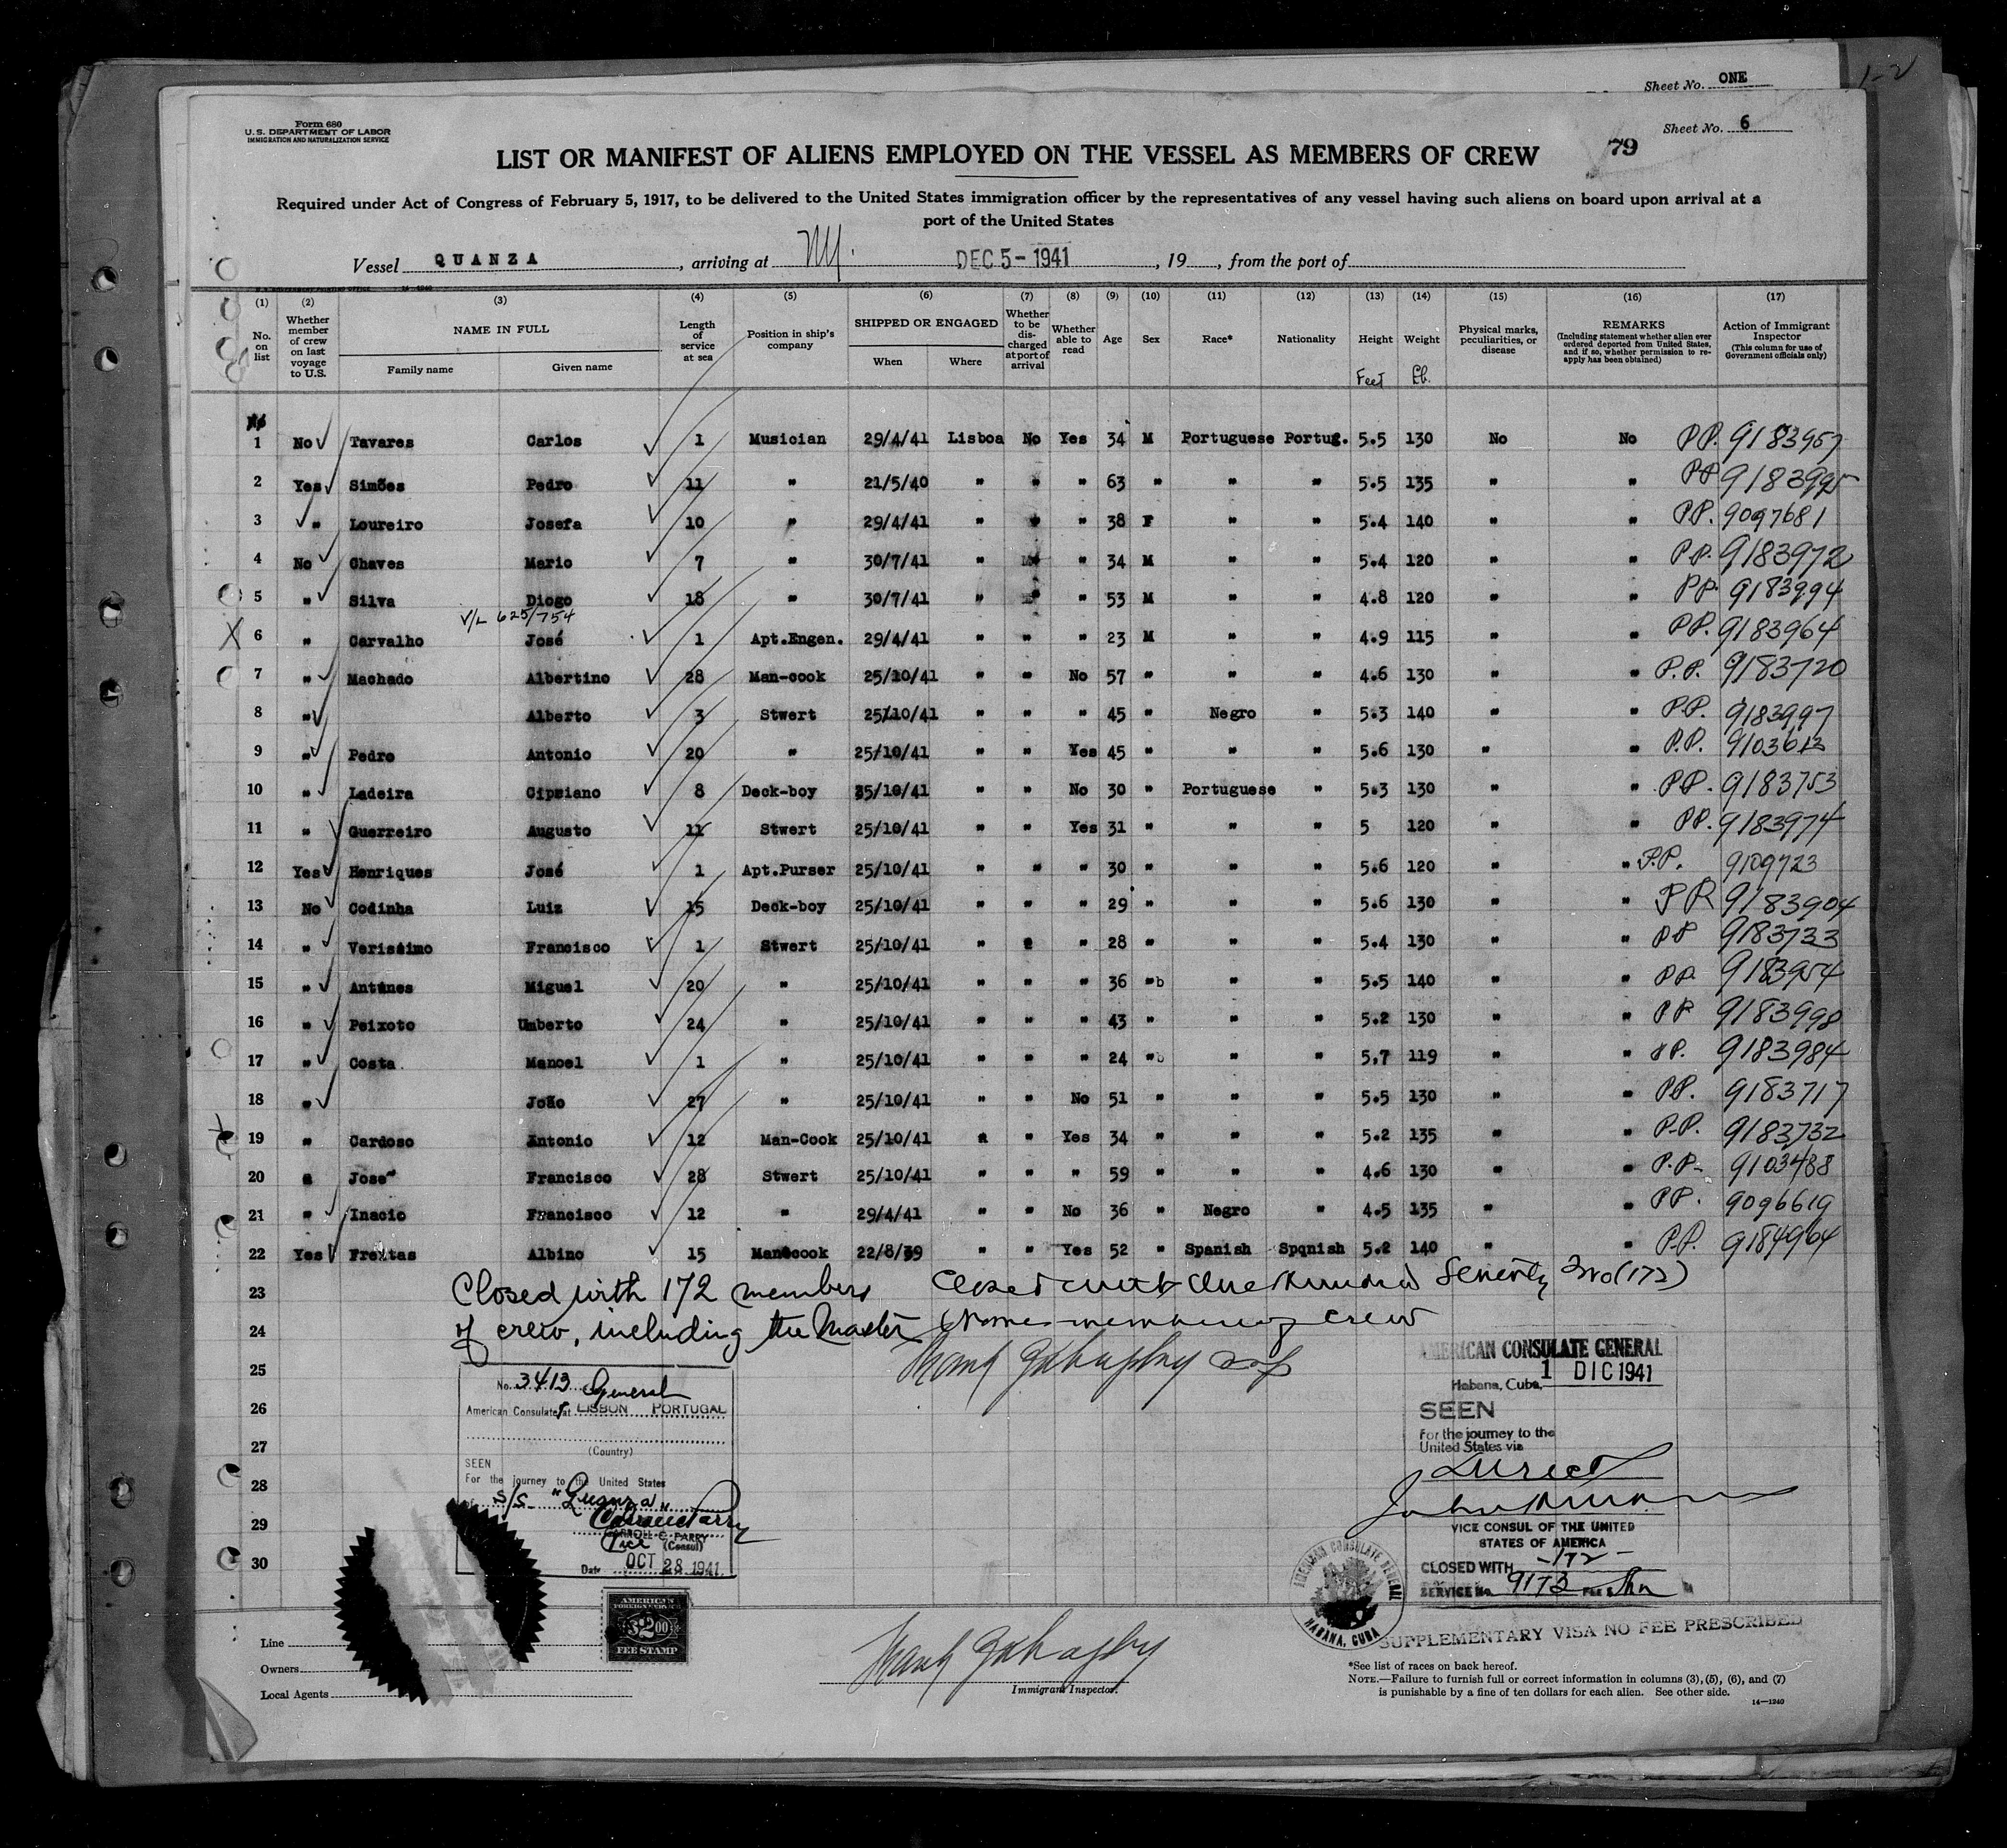 Sheet No. ONE
1-2
Form 680
U. S. DEPARTMENT OF LABOR
IMMIGRATION AND NATURALIZATION SERVICE
Sheet No. 6
79
LIST OR MANIFEST OF ALIENS EMPLOYED ON THE VESSEL AS MEMBERS OF CREW
Required under Act of Congress of February 5, 1917, to be delivered to the United States immigration officer by the representatives of any vessel having such aliens on board upon arrival at a
port of the United States
Vessel QUANZA, arriving at NY. DEC 5 - 1941, 19, from the port of
(1) (2) (3) (4) (5) (6) (7) (8) (9) (10) (11) (12) (13) (14) (15) (16) (17)
No. on list
Whether member of crew on last voyage to U.S.
NAME IN FULL
Family name Given name
Length of service at sea
Position in ship's company
SHIPPED OR ENGAGED
When Where
Whether to be discharged at port of arrival
Whether able to read
Age
Sex
Race*
Nationality
Height
Feet
Weight
Lb.
Physical marks, peculiarities, or disease
REMARKS
(Including statement whether alien ever ordered deported from United States, and if so, whether permission to reapply has been obtained)
Action of Immigrant Inspector
(This column for use of Government officials only)
1 No Tavares Carlos 1 Musician 29/4/41 Lisboa No Yes 34 M Portuguese Portug. 5.5 130 No No PP. 9183957
2 Yes Simões Pedro 11 " 21/5/40 " " " 63 " " " 5.5 135 " " PP 9183995
3 " Loureiro Josefa 10 " 29/4/41 " " " 38 F " " 5.4 140 " " PP. 9097681
4 No Chaves Mario 7 " 30/7/41 " " " 34 M " " 5.4 120 " " PP. 9183972
5 " Silva Diogo 18 " 30/7/41 " " " 53 M " " 4.8 120 " " PP. 9183994
V/L 625/754
6 " Carvalho José 1 Apt.Engen. 29/4/41 " " " 23 M " " 4.9 115 " " PP. 9183964
7 " Machado Albertino 28 Man-cook 25/10/41 " " No 57 " " " 4.6 130 " " P.P. 9183720
8 " Alberto 3 Stwert 25/10/41 " " " 45 " Negro " 5.3 140 " " P.P. 9183997
9 " Pedro Antonio 20 " 25/10/41 " " Yes 45 " " " 5.6 130 " " P.P. 9103613
10 " Ladeira Cipriano 8 Deck-boy 25/10/41 " " No 30 " Portuguese " 5.3 130 " " PP. 9183753
11 " Guerreiro Augusto 11 Stwert 25/10/41 " " Yes 31 " " " 5 120 " " PP. 9183974
12 Yes Henriques José 1 Apt.Purser 25/10/41 " " " 30 " " " 5.6 120 " " P.P. 9109723
13 No Codinha Luiz 15 Deck-boy 25/10/41 " " " 29 " " " 5.6 130 " " PP 9183904
14 " Verissimo Francisco 1 Stwert 25/10/41 " " " 28 " " " 5.4 130 " " PP 9183733
15 " Antunes Miguel 20 " 25/10/41 " " " 36 "b " " 5.5 140 " " PP. 9183954
16 " Peixoto Umberto 24 " 25/10/41 " " " 43 " " " 5.2 130 " " PP 9183998
17 " Costa Manoel 1 " 25/10/41 " " " 24 "b " " 5,7 119 " " PP. 9183984
18 " João 27 " 25/10/41 " " No 51 " " " 5.5 130 " " PP. 9183717
19 " Cardoso Antonio 12 Man-Cook 25/10/41 " " Yes 34 " " " 5.2 135 " " P.P. 9183732
20 " Jose Francisco 28 Stwert 25/10/41 " " " 59 " " " 4.6 130 " " P.P- 9103488
21 " Inacio Francisco 12 " 29/4/41 " " No 36 " Negro " 4.5 135 " " PP. 9096619
22 Yes Freitas Albino 15 Man-cook 22/8/39 " " Yes 52 " Spanish Spqnish 5.2 140 " " P.P. 9184964
23 Closed with 172 members Closed with One Hundred Seventy Two (172)
24 of crew, including the Master members of crew
25
26
27
28
29
30
No. 3413 General
American Consulate at LISBON PORTUGAL
(Country)
SEEN
For the journey to the United States
S/S "Quanza"
CARROLL C. PARRY
Vice (Consul)
Date OCT 28 1941
AMERICAN
FOREIGN SERVICE
$2.00
FEE STAMP
AMERICAN CONSULATE GENERAL
Habana, Cuba, 1 DIC 1941
SEEN
For the journey to the
United States via
Direct
VICE CONSUL OF THE UNITED
STATES OF AMERICA
CLOSED WITH -172-
SERVICE No. 9173 FEE $
AMERICAN CONSULATE GENERAL
HABANA, CUBA
SUPPLEMENTARY VISA NO FEE PRESCRIBED
Line
Owners
Local Agents
Immigrant Inspector.
*See list of races on back hereof.
NOTE.—Failure to furnish full or correct information in columns (3), (5), (6), and (7)
is punishable by a fine of ten dollars for each alien. See other side.
14—1240